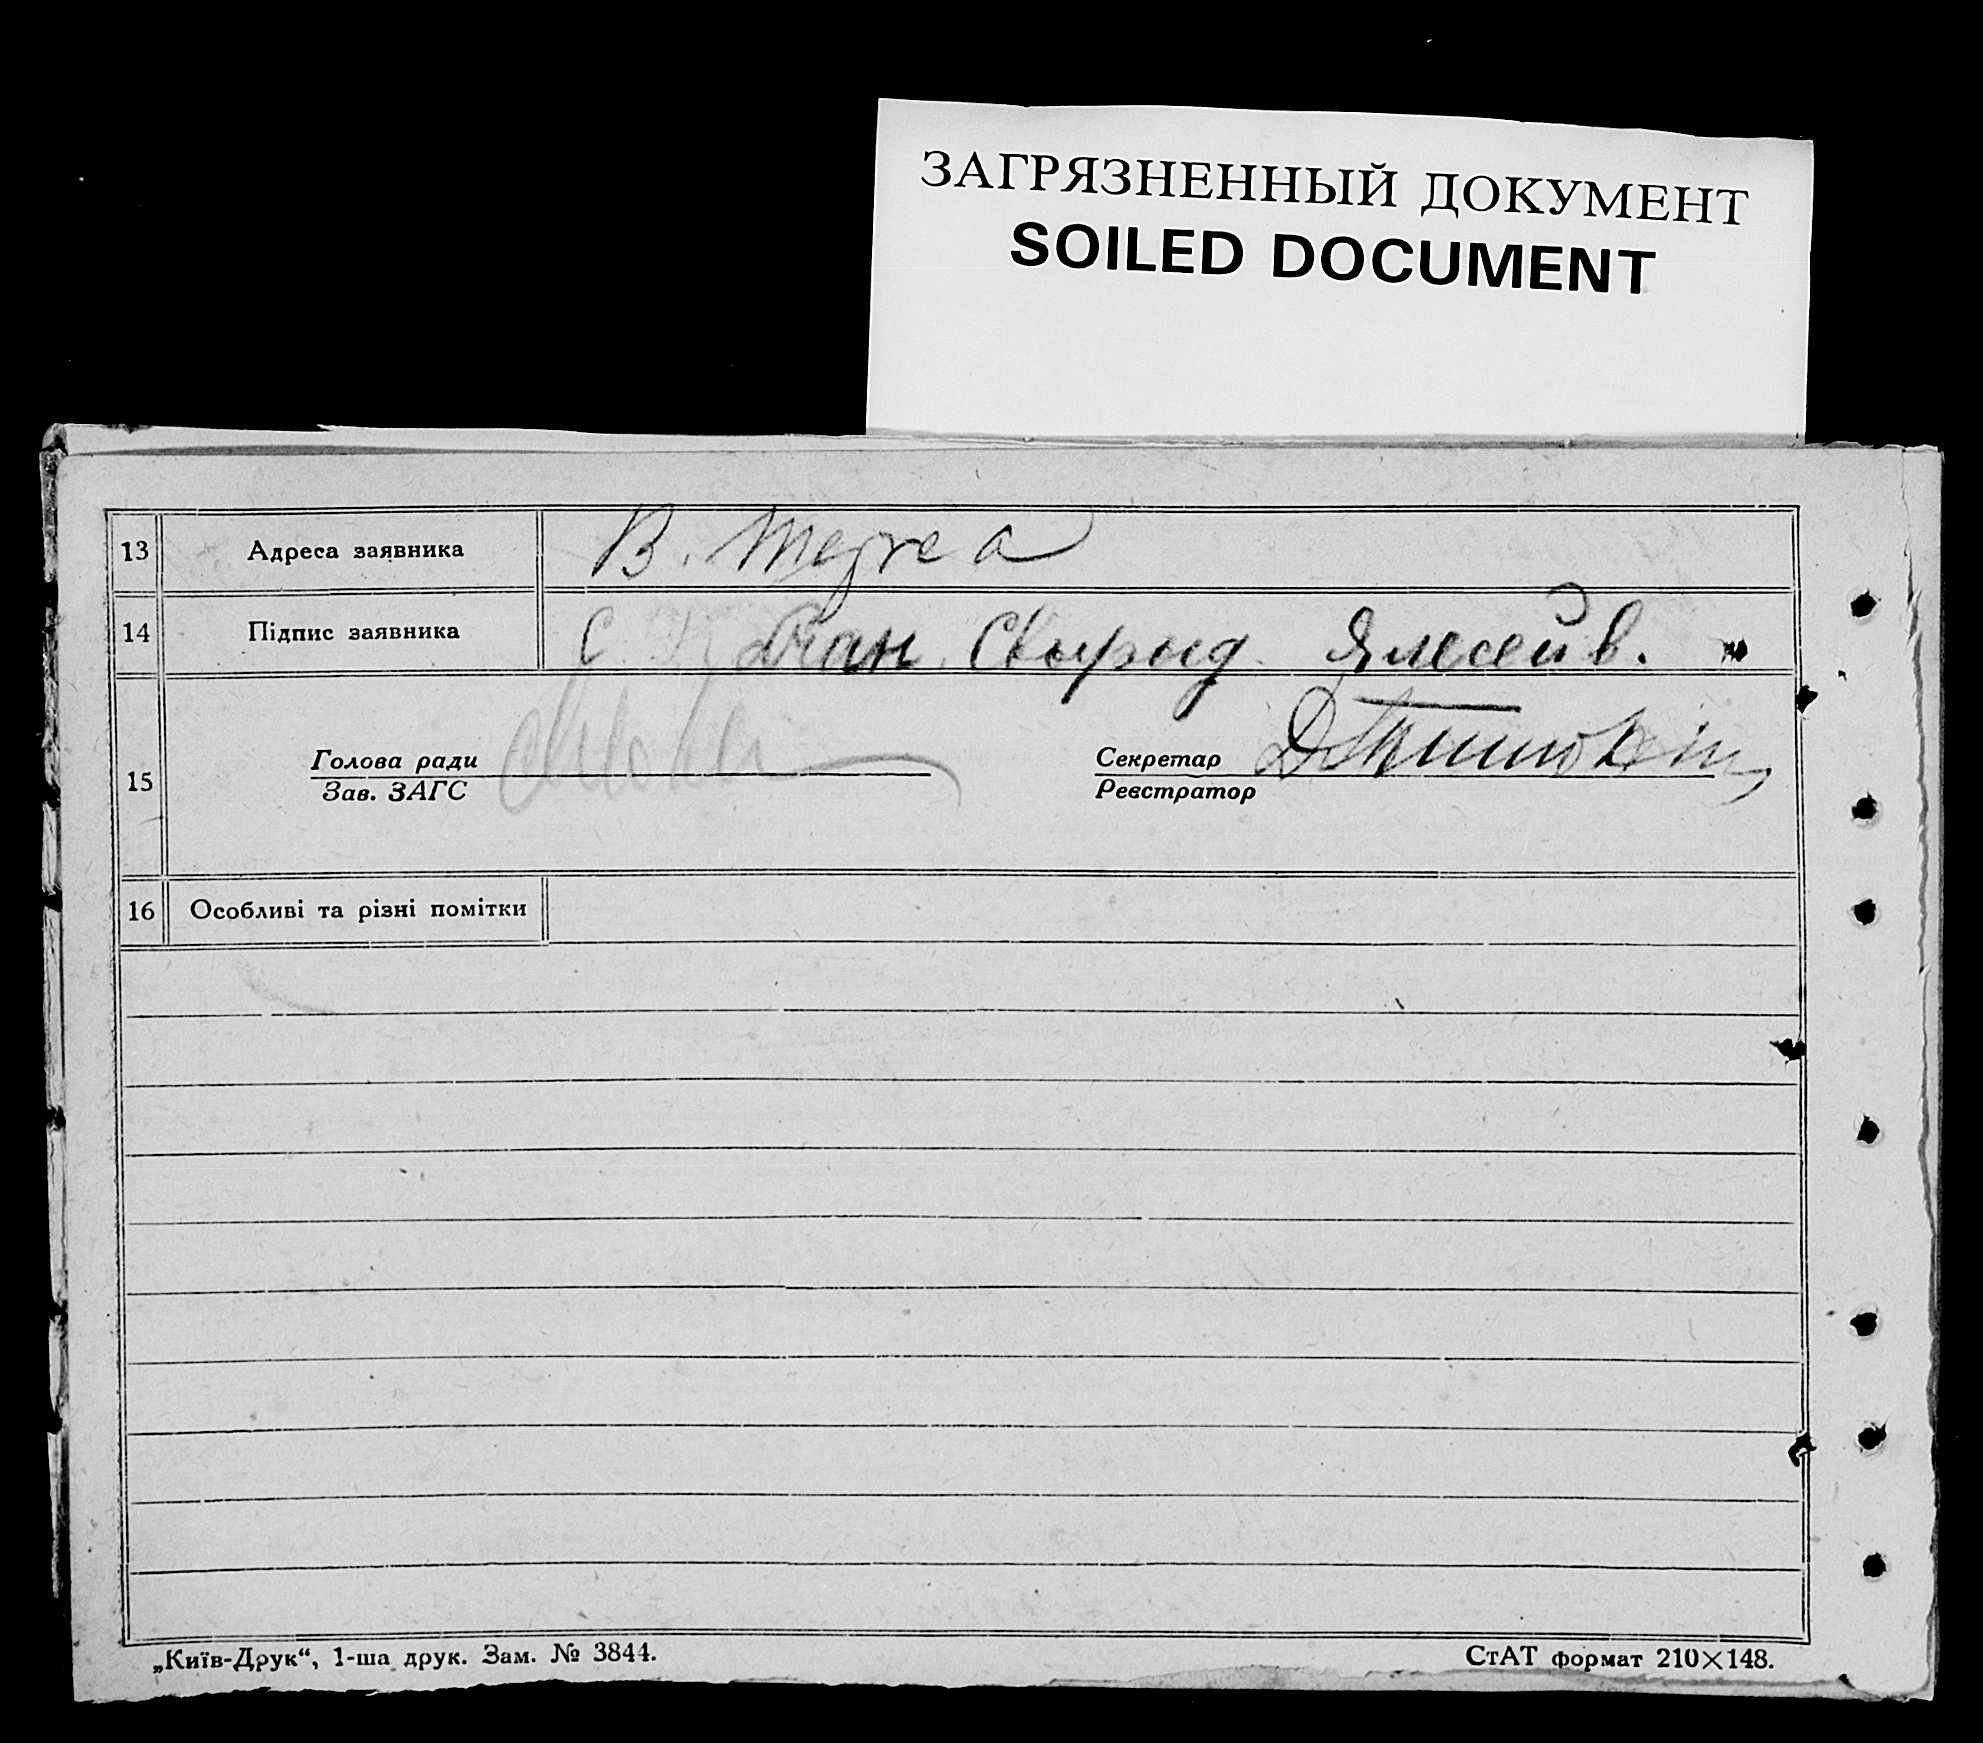 ЗАГРЯЗНЕННЫЙ ДОКУМЕНТ
SOILED DOCUMENT
13 Адреса заявника В.
14 Підпис заявника С. Свырыд
15 Голова ради Секретар
Зав. ЗАГС Реєстратор
16 Особливі та різні помітки
„Київ-Друк“, 1-ша друк. Зам. № 3844. СтАТ формат 210×148.